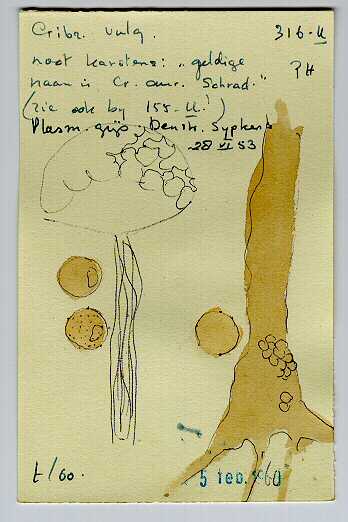 Cribr. vulg. 316-II
noot Karstens: „geldige PH
naam is Cr. aur. Schrad."
(zie ook by 155-II!)
Plasm. grijs Denth. Sypkens
28 VI 53
t/60.
5 feb. 1960